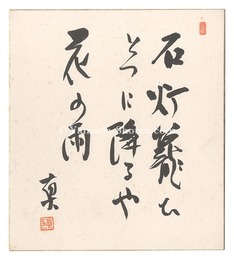 石灯籠ひ
とつに降るや
花の雨